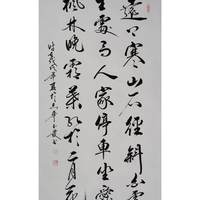 遠上寒山石徑斜白雲
生處有人家停車坐愛
楓林晚霜葉紅於二月花